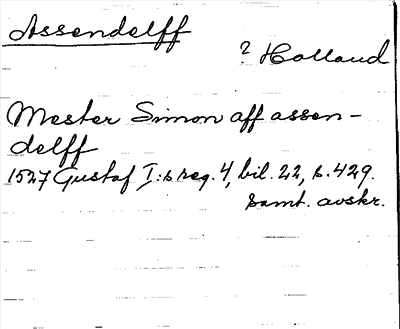 Assendelff
? Holland
Mester Simon aff assen-
delff
1527 Gustaf I:s reg. 4, bil. 22, s. 429.
samt. avskr.